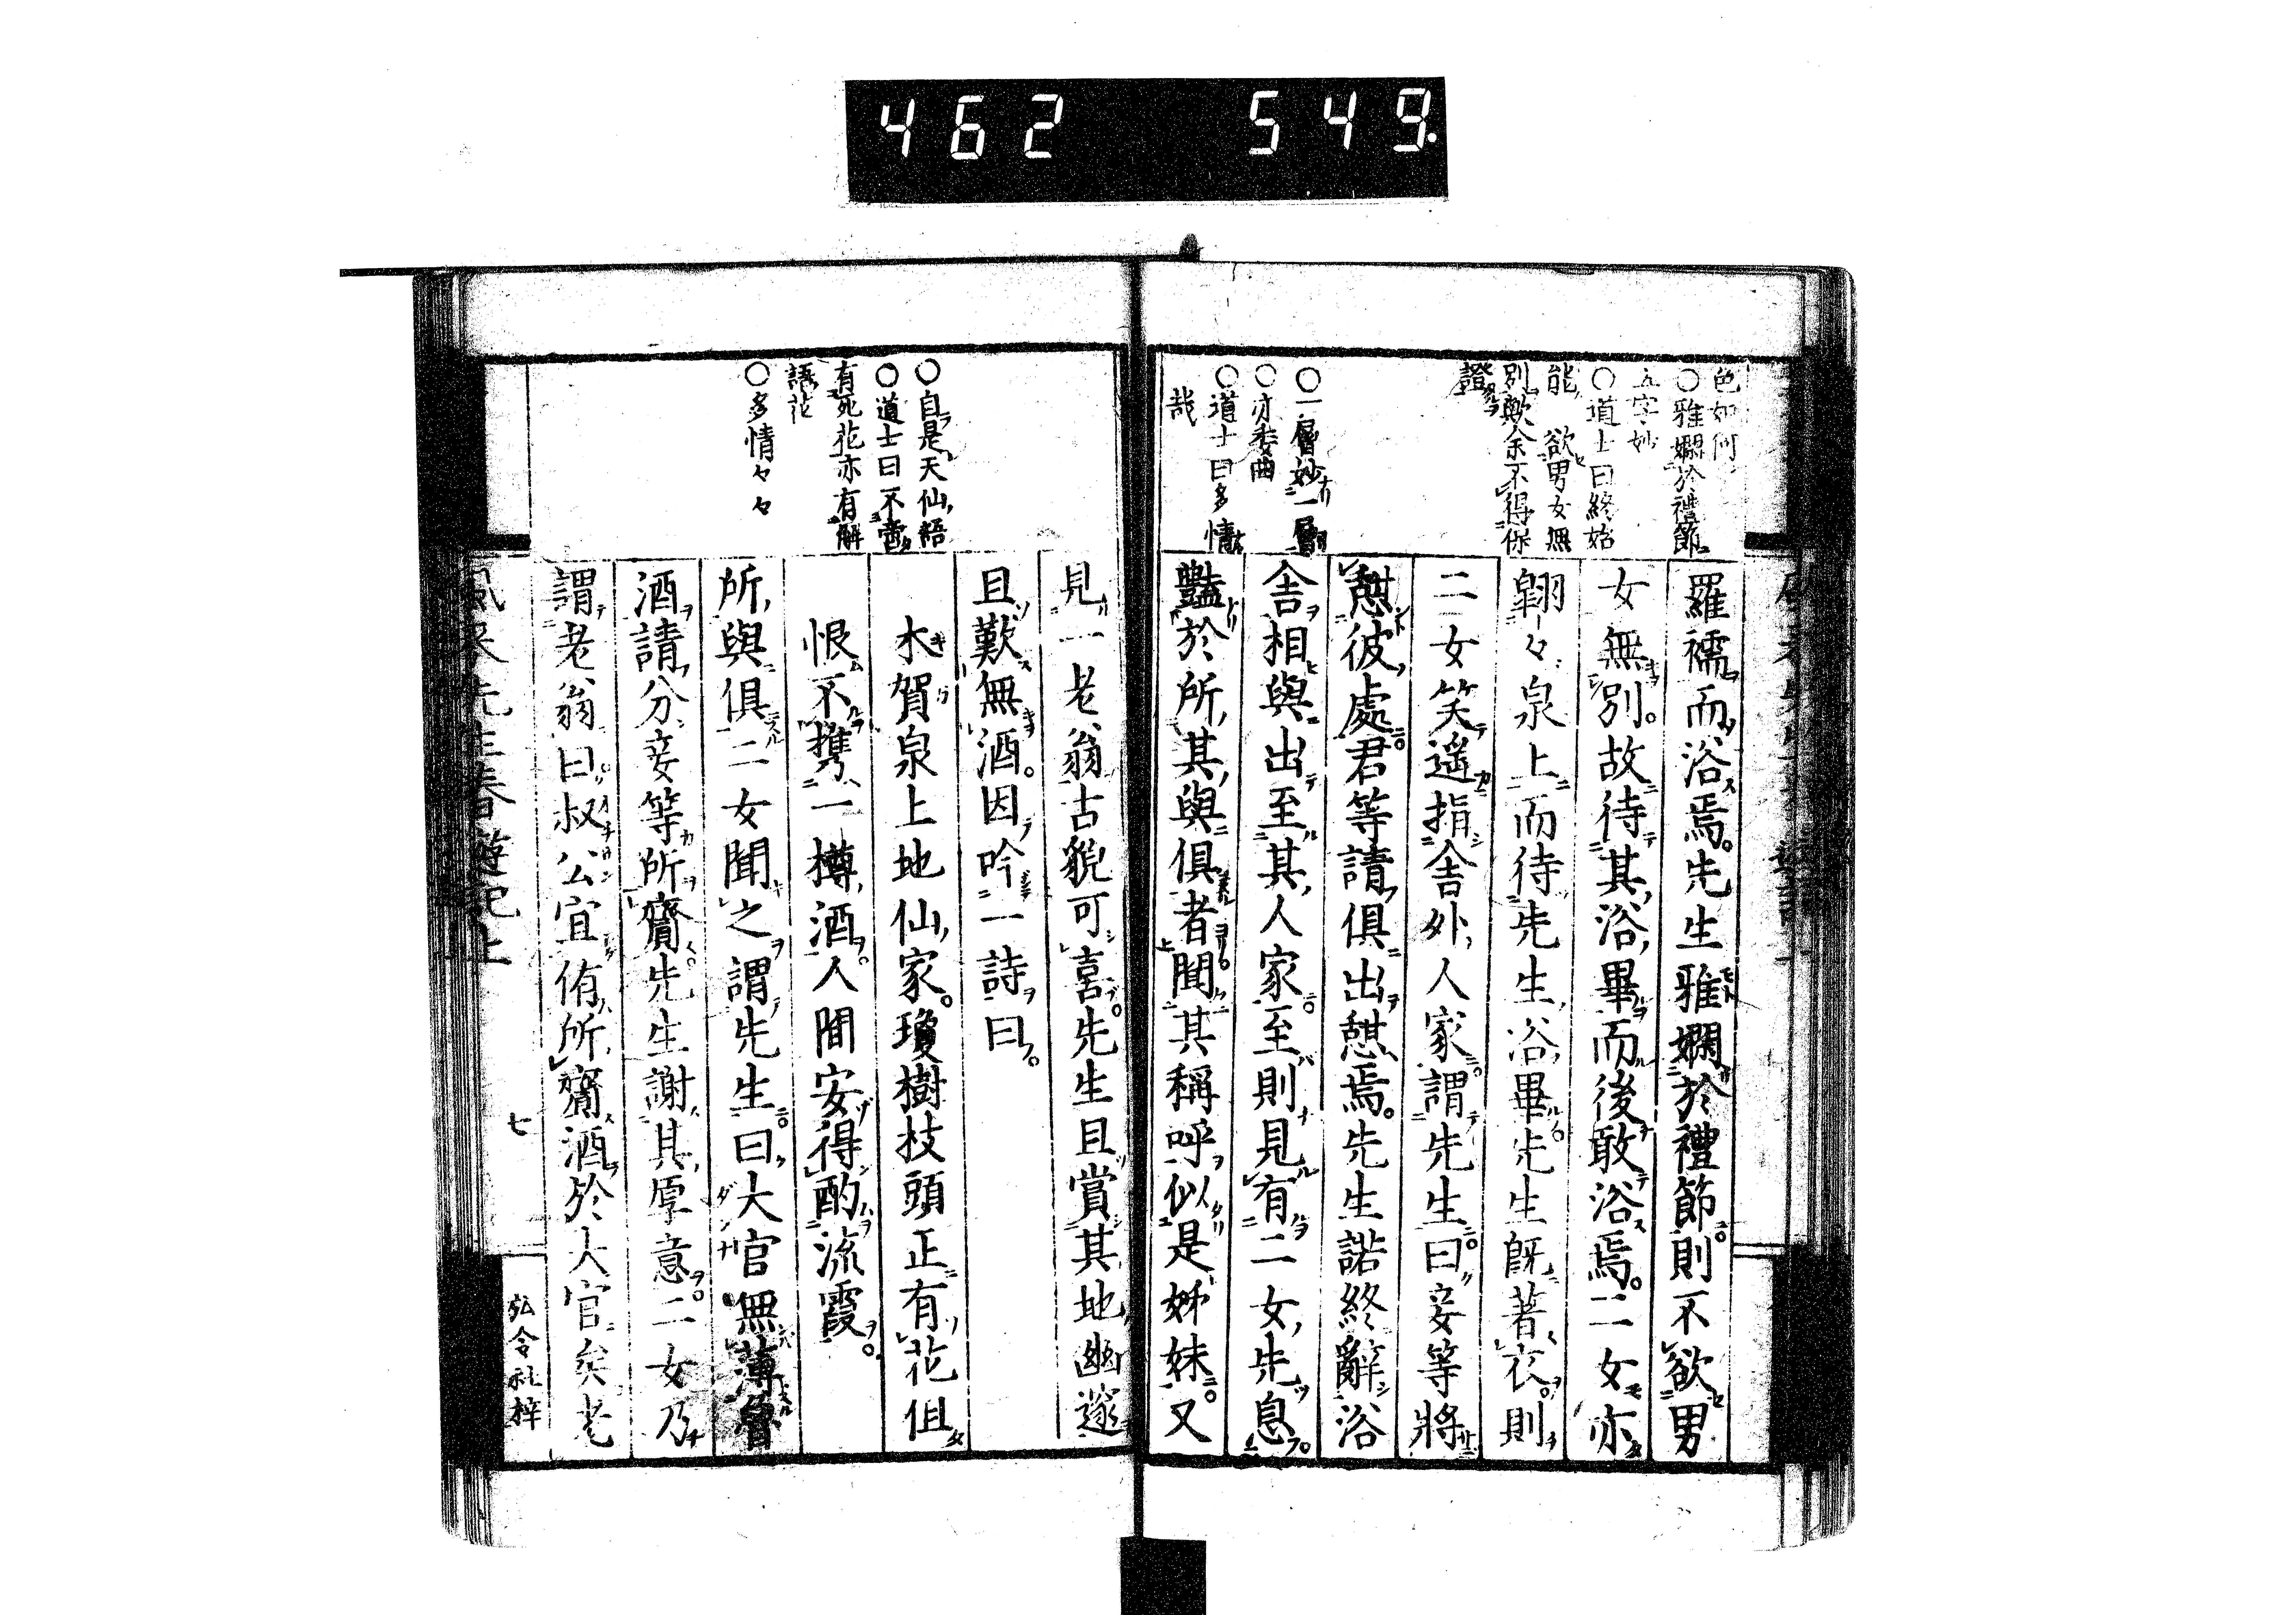 462 549
色如何
○雅嫻於禮節
五字妙
○道士曰終始
能欲男女無
別歟余不得保
證
○一層妙一層
○亦委曲
○道士曰多情
哉
羅襦而浴焉。先生雅嫻於禮節。則不欲男
女無別。故待其浴畢而後敢浴焉。二女亦
翺々泉上而待先生浴畢。先生既著衣。則
二女笑遙指舍外人家。謂先生。曰妾等將
憇彼處。君等請俱出憇焉。先生諾終辭浴
舍相與出至其人家。至則見有二女先息。
豔於所其與俱者。聞其稱呼似是姊妹。又
○自是天仙語
○道士曰不啻
有死花亦有解
語花
○多情々々
見一老翁古貌可喜。先生且賞其地幽邃
且歎無酒。因吟一詩曰。
木賀泉上地仙家。瓊樹枝頭正有花但
恨不攜一樽酒。人間安得酌流霞。
所與俱二女聞之謂先生。曰大官無薄
酒請分妾等所齎。先生謝其厚意。二女乃
謂老翁曰。叔公宜侑所齎酒於大官矣老
風来先生春遊記上
七
弘令社梓